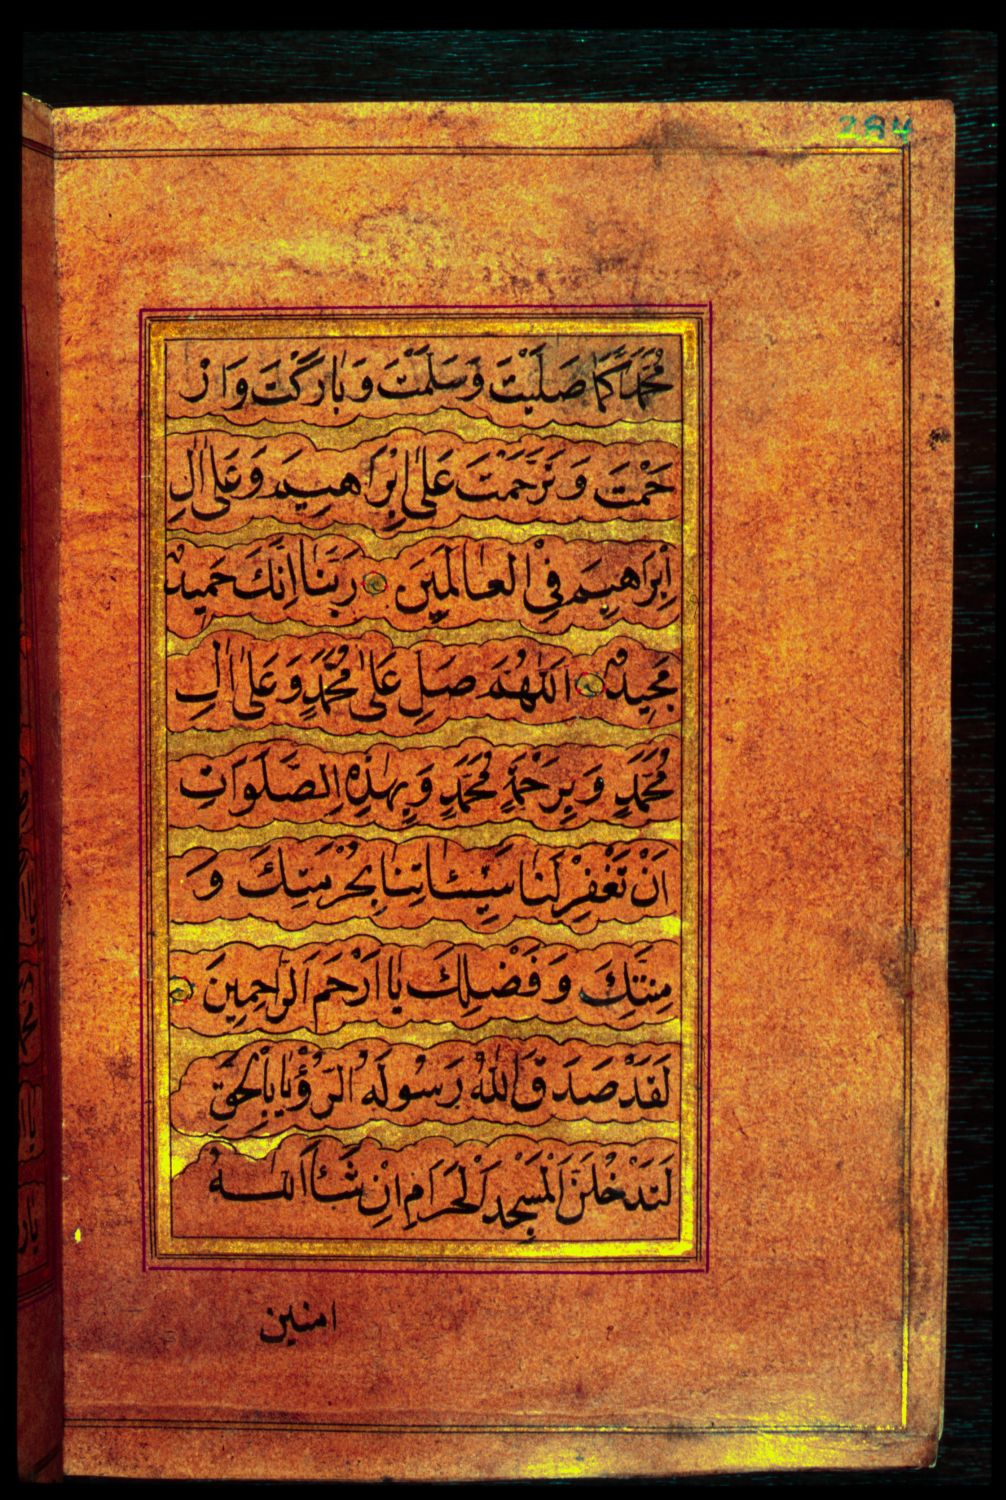 284
مُحَمَّدٍ كَمَا صَلَّيْتَ وَسَلَّمْتَ وَبَارَكْتَ وَارْ
حَمْتَ وَتَرَحَّمْتَ عَلٰى اِبْرَاهِيمَ وَعَلٰى اٰلِ
اِبْرَاهِيمَ فِى الْعَالَمِينَ رَبَّنَا اِنَّكَ حَمِيدٌ
مَجِيدٌ اَللّٰهُمَّ صَلِّ عَلٰى مُحَمَّدٍ وَعَلٰى اٰلِ
مُحَمَّدٍ وَبِرَحْمَةِ مُحَمَّدٍ وَبِهٰذِهِ الصَّلَوَاتِ
اَنْ تَغْفِرْ لَنَا سَيِّئَاتِنَا بِحُرْمَتِكَ وَ
مِنَّتِكَ وَفَضْلِكَ يَا اَرْحَمَ الرَّاحِمِينَ
لَقَدْ صَدَقَ اللّٰهُ رَسُولَهُ الرُّؤْيَا بِالْحَقِّ
لَتَدْخُلُنَّ الْمَسْجِدَ الْحَرَامَ اِنْ شَاءَ اللّٰهُ
امنين